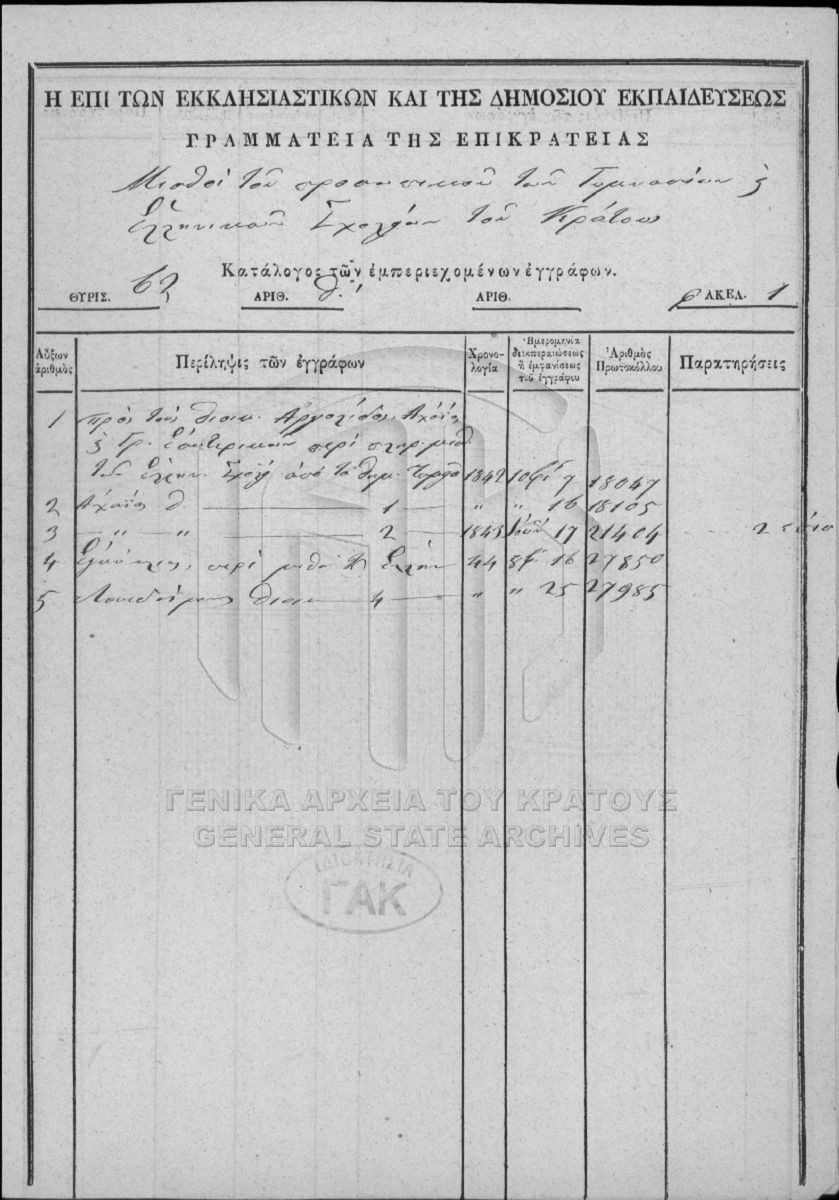 Η ΕΠΙ ΤΩΝ ΕΚΚΛΗΣΙΑΣΤΙΚΩΝ ΚΑΙ ΤΗΣ ΔΗΜΟΣΙΟΥ ΕΚΠΑΙΔΕΥΣΕΩΣ
ΓΡΑΜΜΑΤΕΙΑ ΤΗΣ ΕΠΙΚΡΑΤΕΙΑΣ
Μισθοὶ τοῦ προσωπικοῦ τῶν Γυμνασίων
Ἑλληνικῶν Σχολείων τοῦ Κράτους
Κατάλογος τῶν ἐμπεριεχομένων ἐγγράφων.
ΘΥΡΙΣ. 62 ΑΡΙΘ. θ. ΑΡΙΘ. ΦΑΚΕΛ. 1
Αὔξων ἀριθμὸς
Περίληψις τῶν ἐγγράφων
Χρονολογία
Ἡμερομηνία διεκπεραιώσεως ἢ ἐμφανίσεως τοῦ ἐγγράφου
Ἀριθμὸς Πρωτοκόλλου
Παρατηρήσεις
1 πρὸς τοὺς διοικ. Ἀργολίδος Ἀχαΐας
Γρ. Ἐσωτερικῶν περὶ πληρ. μισθ.
τῶν Ἑλλην. Σχολ. ἀπὸ τὰ δημ. 1842 7 18047
2 Ἀχαΐας δ. 1 " " 16 18105
3 " " 2 1843 17 21404 2
4 περὶ μισθ. Ἑλλην. 44 16 27850
5 Λακεδαίμονος διοικ. 4 " " 25 27985
ΓΕΝΙΚΑ ΑΡΧΕΙΑ ΤΟΥ ΚΡΑΤΟΥΣ
GENERAL STATE ARCHIVES
ΙΔΙΟΚΤΗΣΙΑ
ΓΑΚ